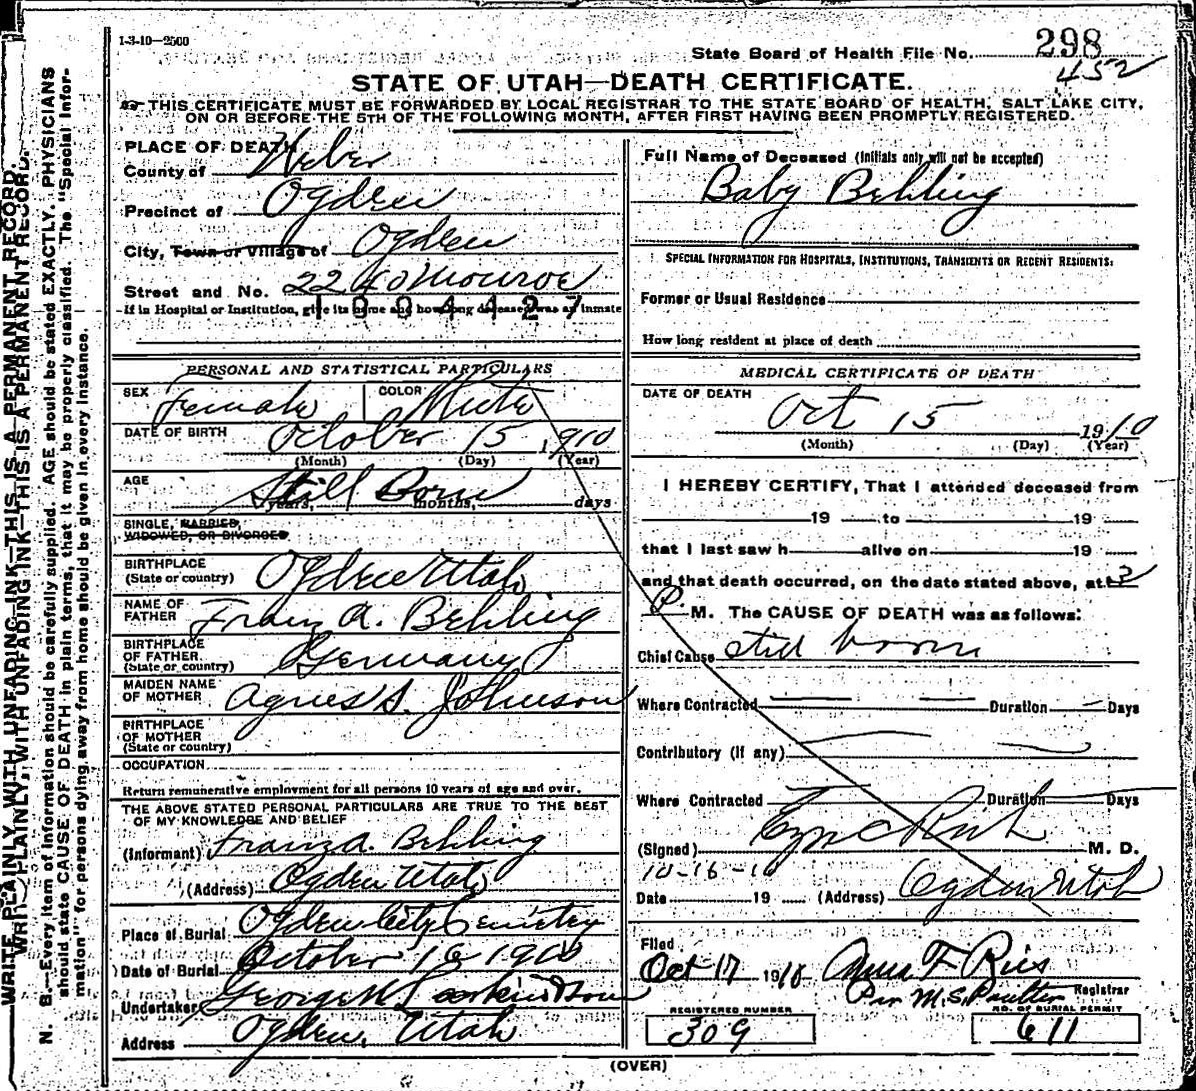 1-3-10—2500
State Board of Health File No. 298
452
STATE OF UTAH—DEATH CERTIFICATE.
THIS CERTIFICATE MUST BE FORWARDED BY LOCAL REGISTRAR TO THE STATE BOARD OF HEALTH, SALT LAKE CITY,
ON OR BEFORE THE 5TH OF THE FOLLOWING MONTH, AFTER FIRST HAVING BEEN PROMPTLY REGISTERED.
PLACE OF DEATH
County of Weber
Precinct of Ogden
City, Town or Village of Ogden
Street and No. 2240 Monroe
1004427
If in Hospital or Institution, give its name and how long deceased was an inmate
PERSONAL AND STATISTICAL PARTICULARS
SEX Female COLOR White
DATE OF BIRTH October 15, 1910
(Month) (Day) (Year)
AGE Still Born
years, months, days
SINGLE, MARRIED,
WIDOWED, OR DIVORCED
BIRTHPLACE
(State or country) Ogden Utah
NAME OF
FATHER Franz A. Behling
BIRTHPLACE
OF FATHER
(State or country) Germany
MAIDEN NAME
OF MOTHER Agnes S. Johnson
BIRTHPLACE
OF MOTHER
(State or country)
OCCUPATION
Return remunerative employment for all persons 10 years of age and over.
THE ABOVE STATED PERSONAL PARTICULARS ARE TRUE TO THE BEST
OF MY KNOWLEDGE AND BELIEF
(Informant) Franz A. Behling
(Address) Ogden Utah
Place of Burial Ogden City Cemetery
Date of Burial October 16 1910
Undertaker George W.
Address Ogden, Utah
Full Name of Deceased (Initials only will not be accepted)
Baby Behling
SPECIAL INFORMATION FOR HOSPITALS, INSTITUTIONS, TRANSIENTS OR RECENT RESIDENTS:
Former or Usual Residence
How long resident at place of death
MEDICAL CERTIFICATE OF DEATH
DATE OF DEATH
Oct 15 1910
(Month) (Day) (Year)
I HEREBY CERTIFY, That I attended deceased from
19 to 19
that I last saw h alive on 19
and that death occurred, on the date stated above, at
P. M. The CAUSE OF DEATH was as follows:
Chief Cause still born
Where Contracted Duration Days
Contributory (if any)
Where Contracted Duration Days
(Signed) Rich M. D.
10-16-10
Date 19 (Address) Ogden Utah
Filed
Oct 17 1910
Registrar
Per M. S.
REGISTERED NUMBER
309
NO. OF BURIAL PERMIT
611
(OVER)
WRITE PLAINLY, WITH UNFADING INK—THIS IS A PERMANENT RECORD.
N. B.—Every item of information should be carefully supplied. AGE should be stated EXACTLY. PHYSICIANS
should state CAUSE OF DEATH in plain terms, that it may be properly classified. The "Special Infor-
mation" for persons dying away from home should be given in every instance.